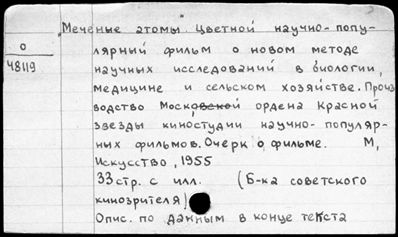 „Меченые атомы. Цветной научно-попу-
О
лярный фильм о новом методе
48119
научных исследований в биологии,
медицине и сельском хозяйстве. Произ
водство Московской ордена Красной
звезды киностудии научно-популяр-
ных фильмов. Очерк о фильме. М,
Искусство, 1955
33 стр. с илл. (Б-ка советского
кинозрителя)
Опис. по данным в конце текста